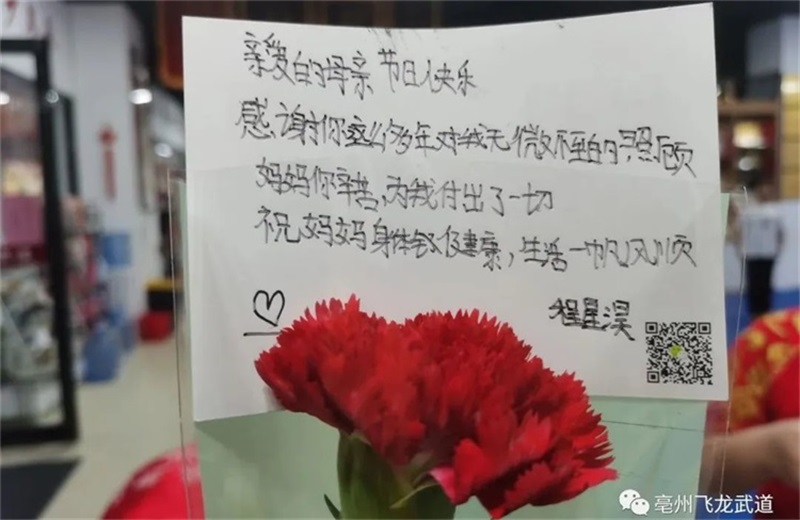 亲爱的母亲节日快乐
感谢你这么多年对我无微不至的照顾
妈妈你辛苦,为我付出了一切
祝妈妈身体健健康,生活一帆风顺
程星淏
亳州飞龙武道